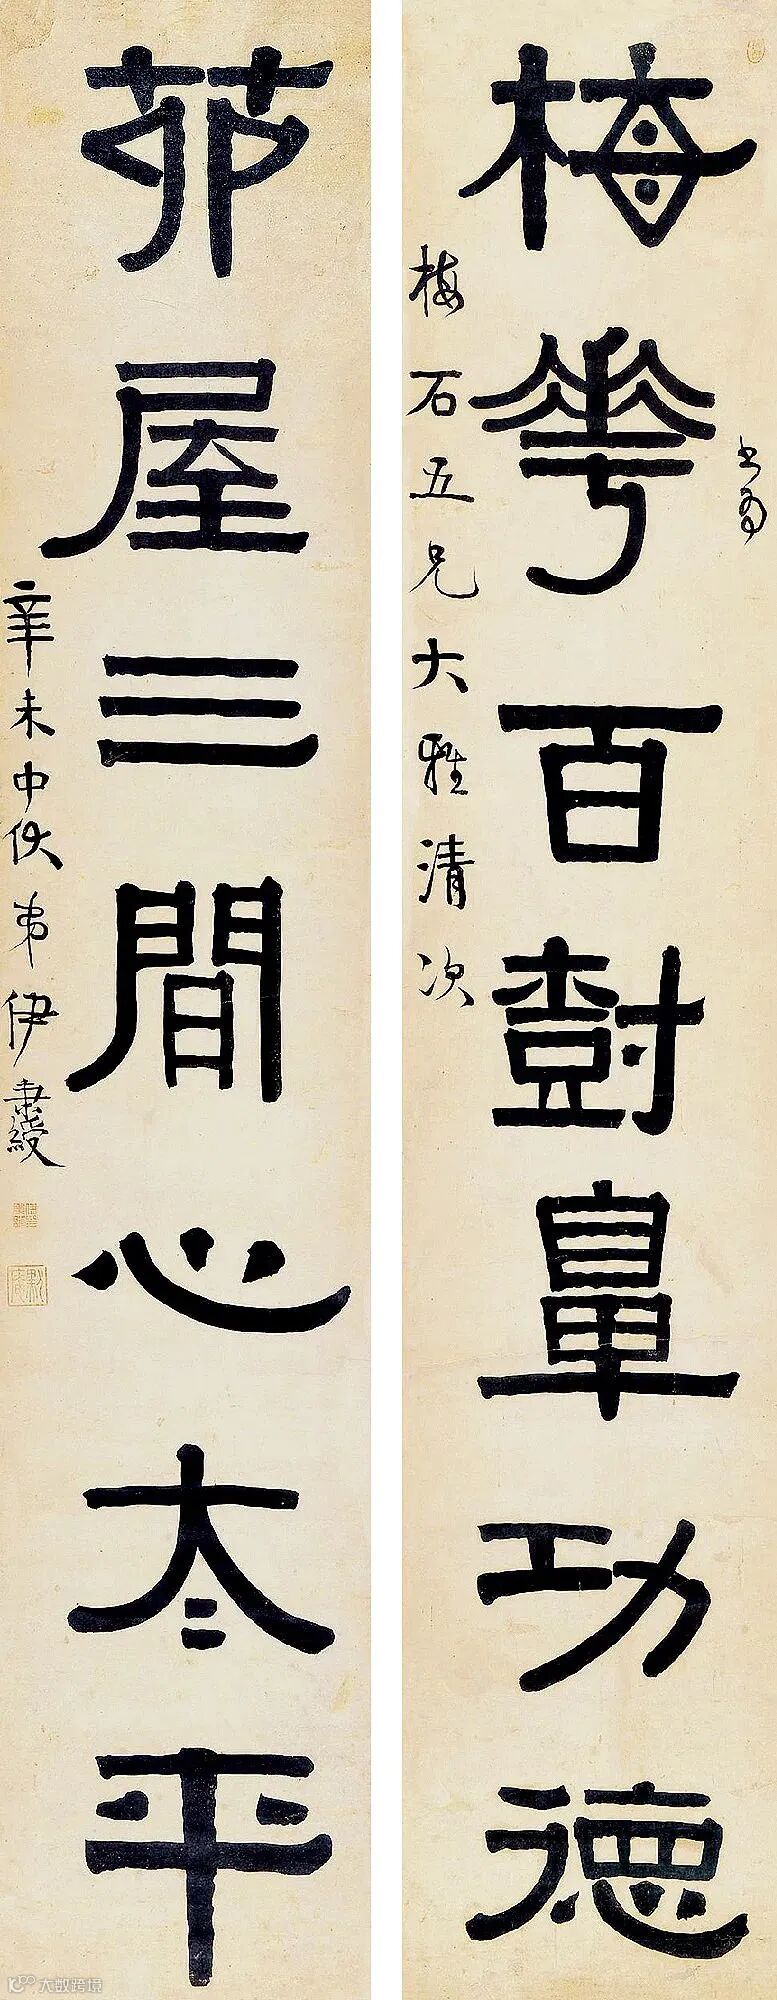 書為
梅華百樹鼻功德
梅石五兄大雅清次
茆屋三間心太平
辛未中伏弟伊秉綬
大数跨境